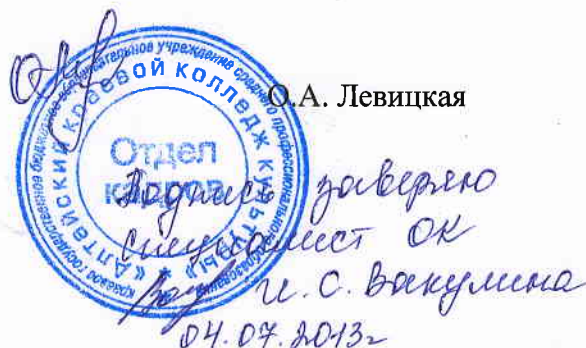 О.А. Левицкая
краевое государственное бюджетное образовательное учреждение среднего профессионального образования
«Алтайский краевой колледж культуры»
Отдел
кадров
Подпись заверяю
специалист ОК
С. Вакулина
04.07.2013г